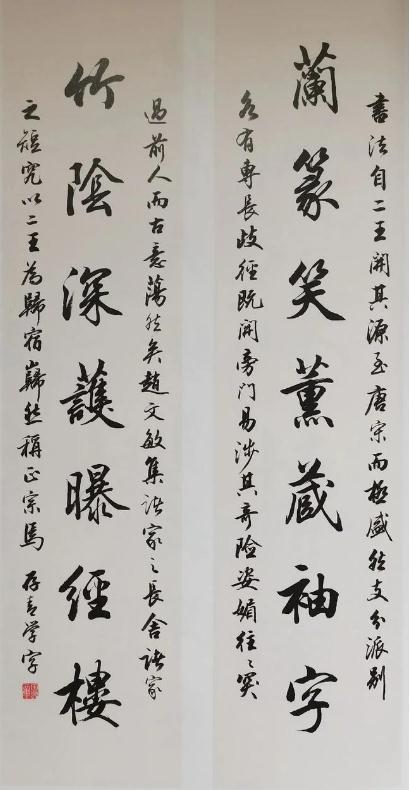 書法自二王開其源至唐宋而極盛然支分派别
蘭篆笑薰蔵袖字
各有專長歧徑既開旁門易涉其奇險姿媚往〻突
過前人而古意蕩然矣趙文敏集諸家之長舍諸家
竹陰深護曝經樓
之短究以二王為歸宿巋然稱正宗焉 存学字